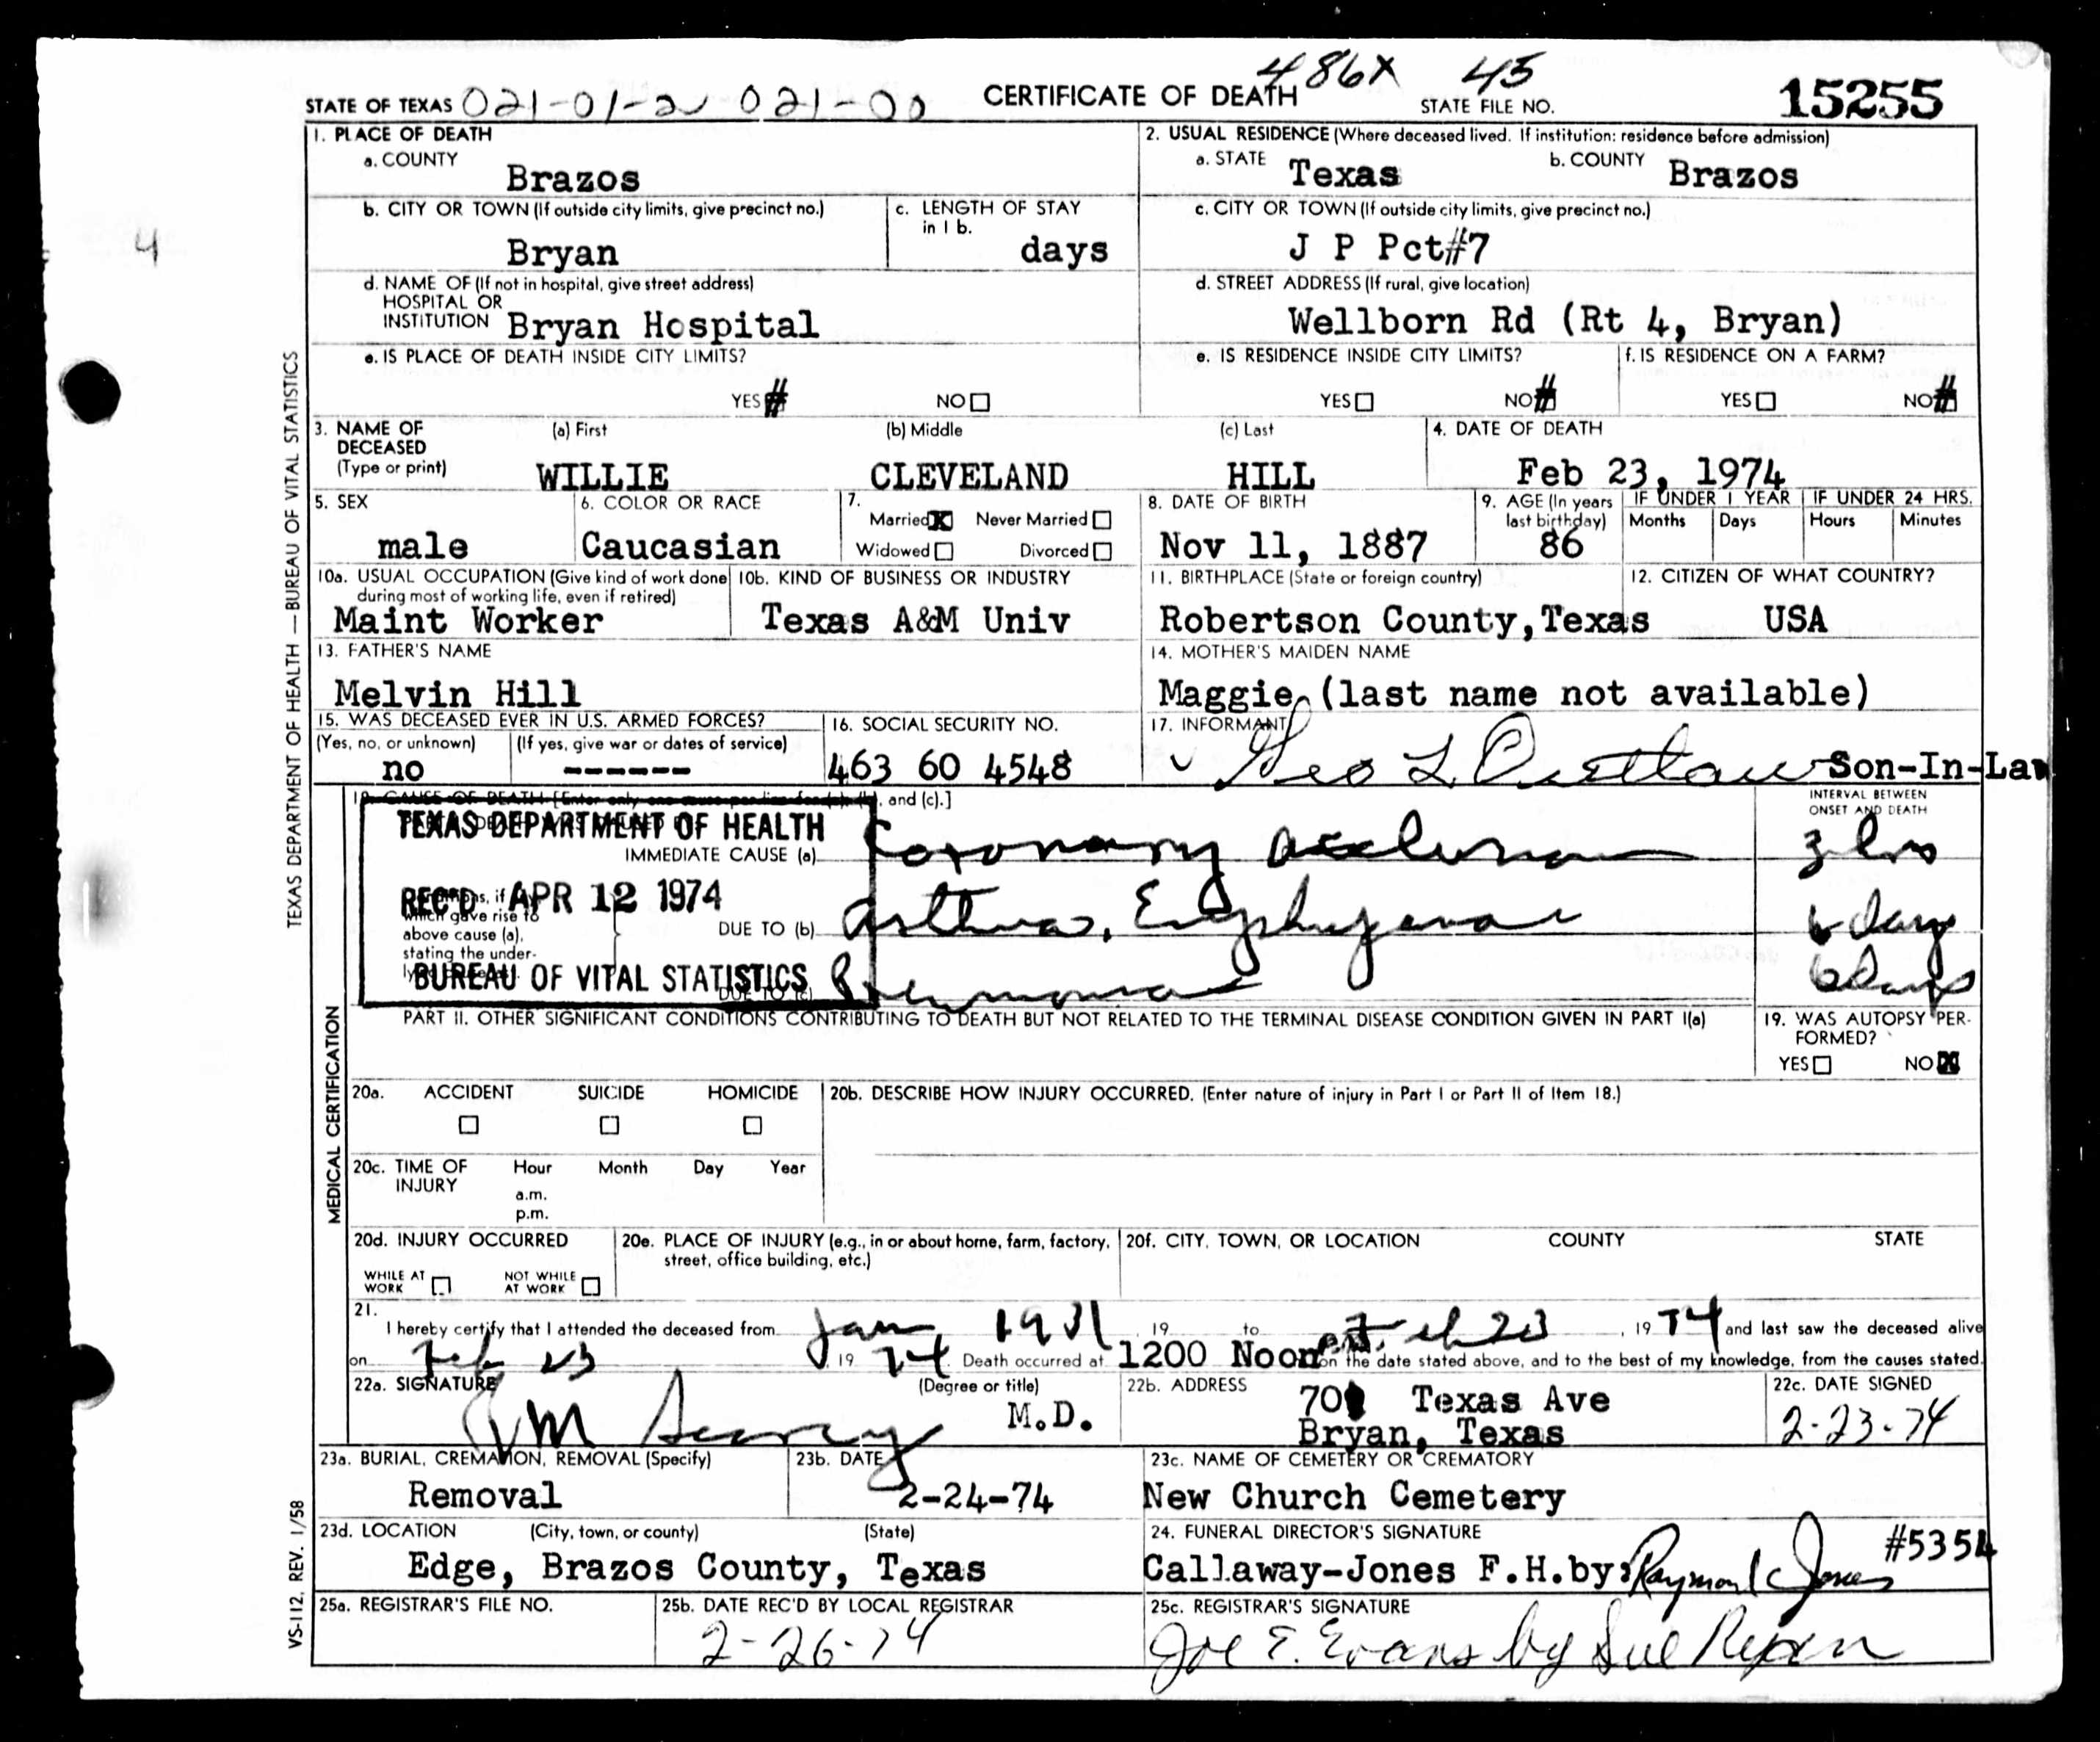 486X 45
STATE OF TEXAS 021-01-2 021-00 CERTIFICATE OF DEATH STATE FILE NO. 15255
1. PLACE OF DEATH
a. COUNTY
Brazos
2. USUAL RESIDENCE (Where deceased lived. If institution: residence before admission)
a. STATE Texas b. COUNTY Brazos
b. CITY OR TOWN (If outside city limits, give precinct no.)
Bryan
c. LENGTH OF STAY
in 1 b.
days
c. CITY OR TOWN (If outside city limits, give precinct no.)
J P Pct#7
4
d. NAME OF (If not in hospital, give street address)
HOSPITAL OR
INSTITUTION Bryan Hospital
d. STREET ADDRESS (If rural, give location)
Wellborn Rd (Rt 4, Bryan)
e. IS PLACE OF DEATH INSIDE CITY LIMITS?
YES # NO
e. IS RESIDENCE INSIDE CITY LIMITS?
YES NO #
f. IS RESIDENCE ON A FARM?
YES NO #
3. NAME OF
DECEASED
(Type or print)
(a) First (b) Middle (c) Last
WILLIE CLEVELAND HILL
4. DATE OF DEATH
Feb 23, 1974
5. SEX
male
6. COLOR OR RACE
Caucasian
7.
Married X Never Married
Widowed Divorced
8. DATE OF BIRTH
Nov 11, 1887
9. AGE (In years
last birthday)
86
IF UNDER 1 YEAR
Months Days
IF UNDER 24 HRS.
Hours Minutes
10a. USUAL OCCUPATION (Give kind of work done
during most of working life, even if retired)
Maint Worker
10b. KIND OF BUSINESS OR INDUSTRY
Texas A&M Univ
11. BIRTHPLACE (State or foreign country)
Robertson County,Texas
12. CITIZEN OF WHAT COUNTRY?
USA
13. FATHER'S NAME
Melvin Hill
14. MOTHER'S MAIDEN NAME
Maggie (last name not available)
15. WAS DECEASED EVER IN U.S. ARMED FORCES?
(Yes, no, or unknown) (If yes, give war or dates of service)
no ------
16. SOCIAL SECURITY NO.
463 60 4548
17. INFORMANT
Geo L Outlaw Son-In-Law
18. CAUSE OF DEATH [Enter only one cause per line for (a), (b), and (c).]
INTERVAL BETWEEN
ONSET AND DEATH
TEXAS DEPARTMENT OF HEALTH
REC'D APR 12 1974
BUREAU OF VITAL STATISTICS
IMMEDIATE CAUSE (a) Coronary occlusion 3 hrs
which gave rise to
above cause (a),
stating the under-
DUE TO (b) Asthma, Emphysema 6 days
DUE TO (c) Pneumonia 6 days
PART II. OTHER SIGNIFICANT CONDITIONS CONTRIBUTING TO DEATH BUT NOT RELATED TO THE TERMINAL DISEASE CONDITION GIVEN IN PART I(a)
19. WAS AUTOPSY PER-
FORMED?
YES NO X
20a. ACCIDENT SUICIDE HOMICIDE
20b. DESCRIBE HOW INJURY OCCURRED. (Enter nature of injury in Part I or Part II of Item 18.)
20c. TIME OF
INJURY
Hour Month Day Year
a.m.
p.m.
20d. INJURY OCCURRED
WHILE AT
WORK
NOT WHILE
AT WORK
20e. PLACE OF INJURY (e.g., in or about home, farm, factory,
street, office building, etc.)
20f. CITY, TOWN, OR LOCATION COUNTY STATE
21.
I hereby certify that I attended the deceased from Jan, 1931 19 to Feb 23, 1974 and last saw the deceased alive
on Feb 23, 1974. Death occurred at 1200 Noon on the date stated above, and to the best of my knowledge, from the causes stated.
22a. SIGNATURE (Degree or title)
M.D.
22b. ADDRESS
Texas Ave
Bryan, Texas
22c. DATE SIGNED
2-23-74
23a. BURIAL, CREMATION, REMOVAL (Specify)
Removal
23b. DATE
2-24-74
23c. NAME OF CEMETERY OR CREMATORY
New Church Cemetery
23d. LOCATION (City, town, or county) (State)
Edge, Brazos County, Texas
24. FUNERAL DIRECTOR'S SIGNATURE
Callaway-Jones F.H.by: Raymond C Jones #5354
25a. REGISTRAR'S FILE NO.
25b. DATE REC'D BY LOCAL REGISTRAR
2-26-74
25c. REGISTRAR'S SIGNATURE
Joe E. Evans by Sue
TEXAS DEPARTMENT OF HEALTH — BUREAU OF VITAL STATISTICS
MEDICAL CERTIFICATION
VS-112, REV. 1/58